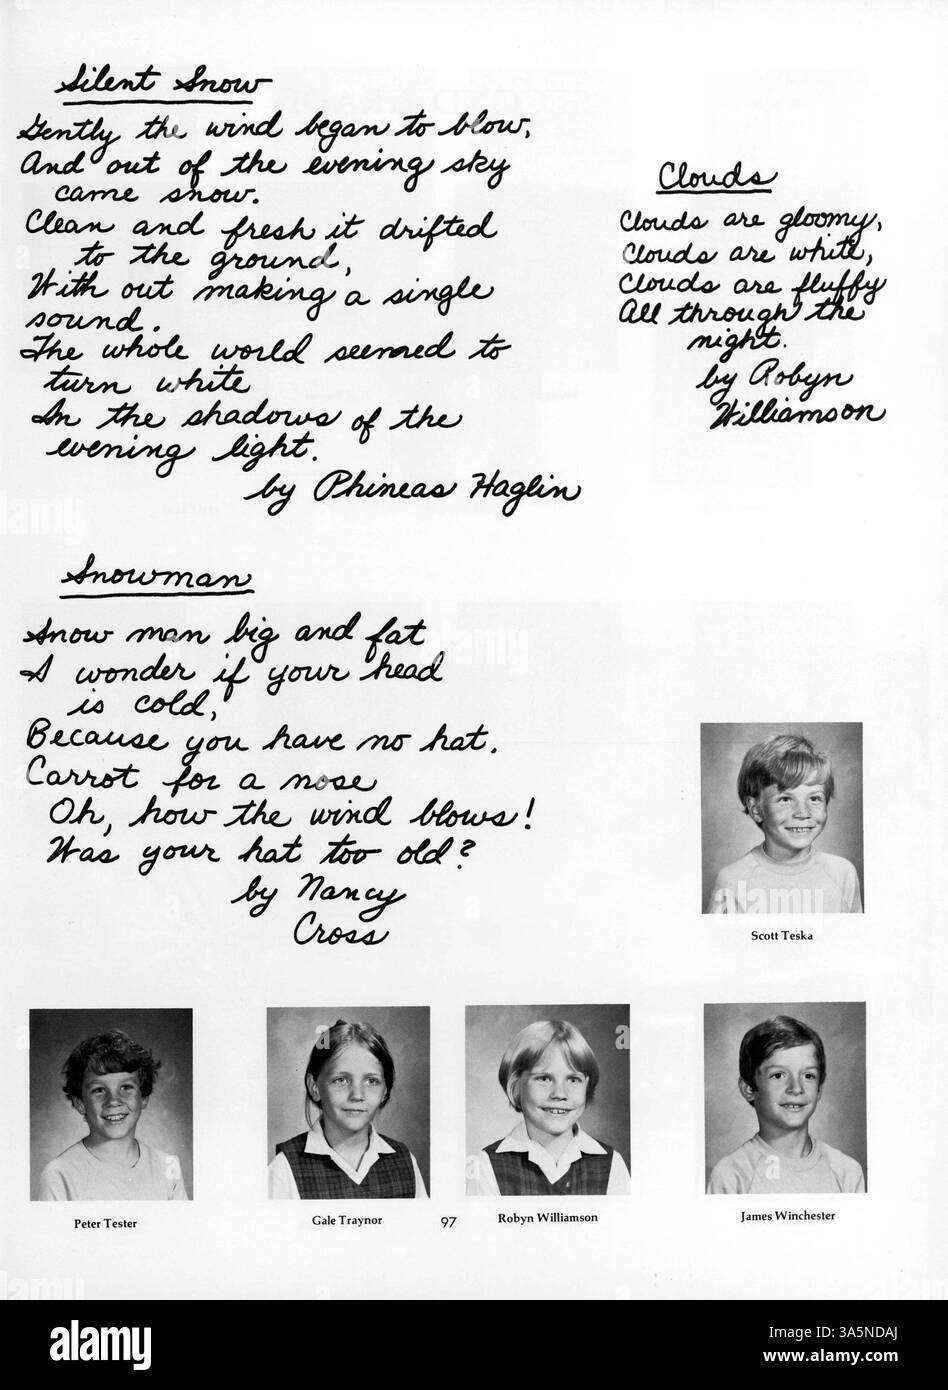 Silent Snow
Gently the wind began to blow,
And out of the evening sky
came snow.
Clean and fresh it drifted
to the ground,
With out making a single
sound.
The whole world seemed to
turn white
In the shadows of the
evening light.
by Phineas Haglin
Clouds
Clouds are gloomy,
Clouds are white,
Clouds are fluffy
All through the
night.
by Robyn
Williamson
Snowman
Snow man big and fat
I wonder if your head
is cold,
Because you have no hat.
Carrot for a nose
Oh, how the wind blows!
Was your hat too old?
by Nancy
Cross
Scott Teska
Peter Tester
Gale Traynor
97
Robyn Williamson
James Winchester
alamy
Image ID: 3A5NDAJ
www.alamy.com